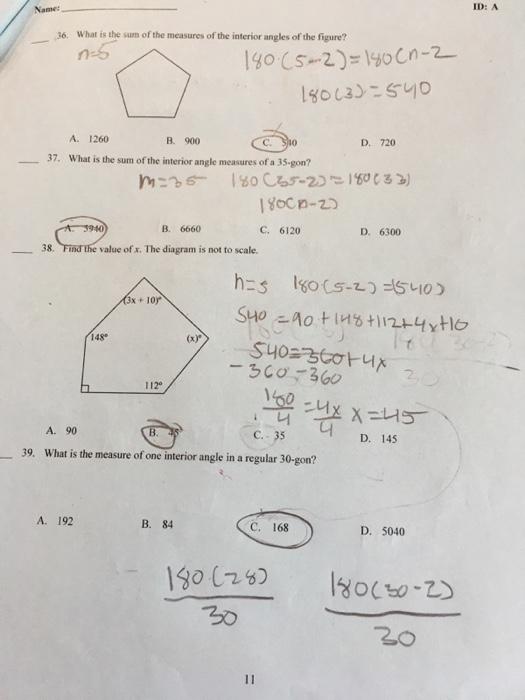 Name:
ID: A
36. What is the sum of the measures of the interior angles of the figure?
n=5
180·(5-2)=180(n-2
180(3)=540
A. 1260 B. 900 C. 540 D. 720
37. What is the sum of the interior angle measures of a 35-gon?
n=35 180(35-2)=180(33)
180(n-2)
A. 5940 B. 6660 C. 6120 D. 6300
38. Find the value of x. The diagram is not to scale.
(3x + 10)°
148°
(x)°
112°
n=5 180(5-2)=(540)
540=90+148+112+4x+10
540=360+4x
-360 -360
180/4 = 4x/4 x=45
A. 90 B. 45 C. 35 D. 145
39. What is the measure of one interior angle in a regular 30-gon?
A. 192 B. 84 C. 168 D. 5040
180(28) 180(30-2)
30 30
11